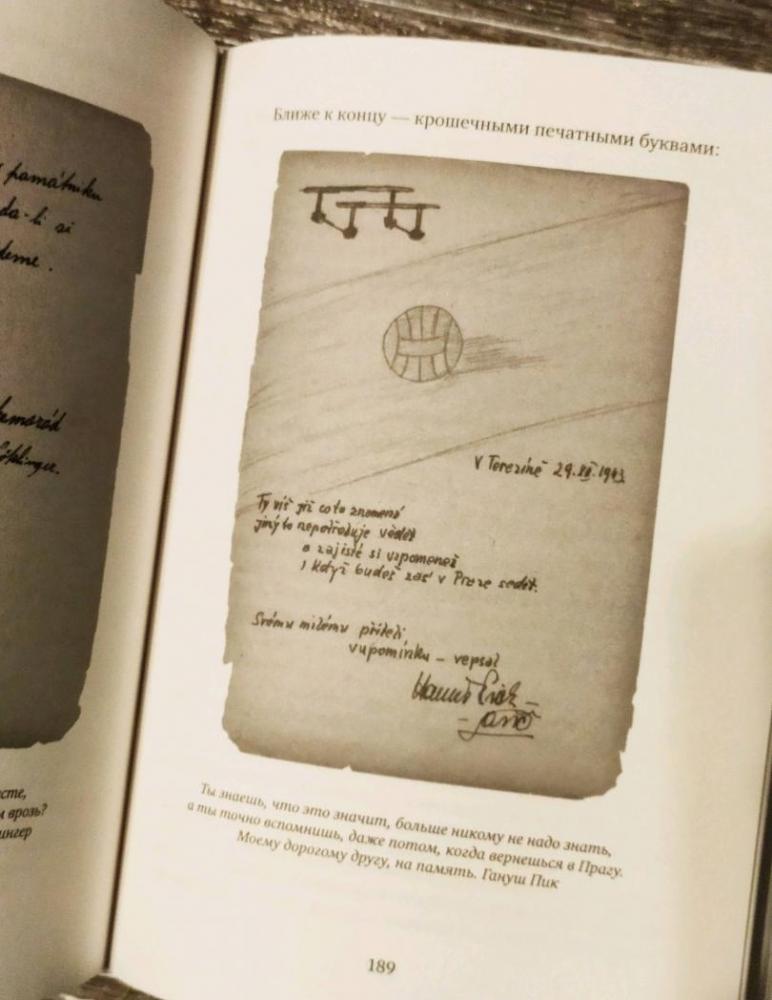 památníku
da-li si
deme.
kamarád
сте,
м врозь?
ингер
Ближе к концу — крошечными печатными буквами:
V Terezíně 29.XII.1943
Ty víš již co to znamená
jiný to nepotřebuje vědět
a zajisté si vzpomeneš
i když budeš zas' v Praze sedět.
Svému milému příteli
vzpomínku – vepsal
Hanuš Pick –
Ты знаешь, что это значит, больше никому не надо знать,
а ты точно вспомнишь, даже потом, когда вернешься в Прагу.
Моему дорогому другу, на память. Гануш Пик
189